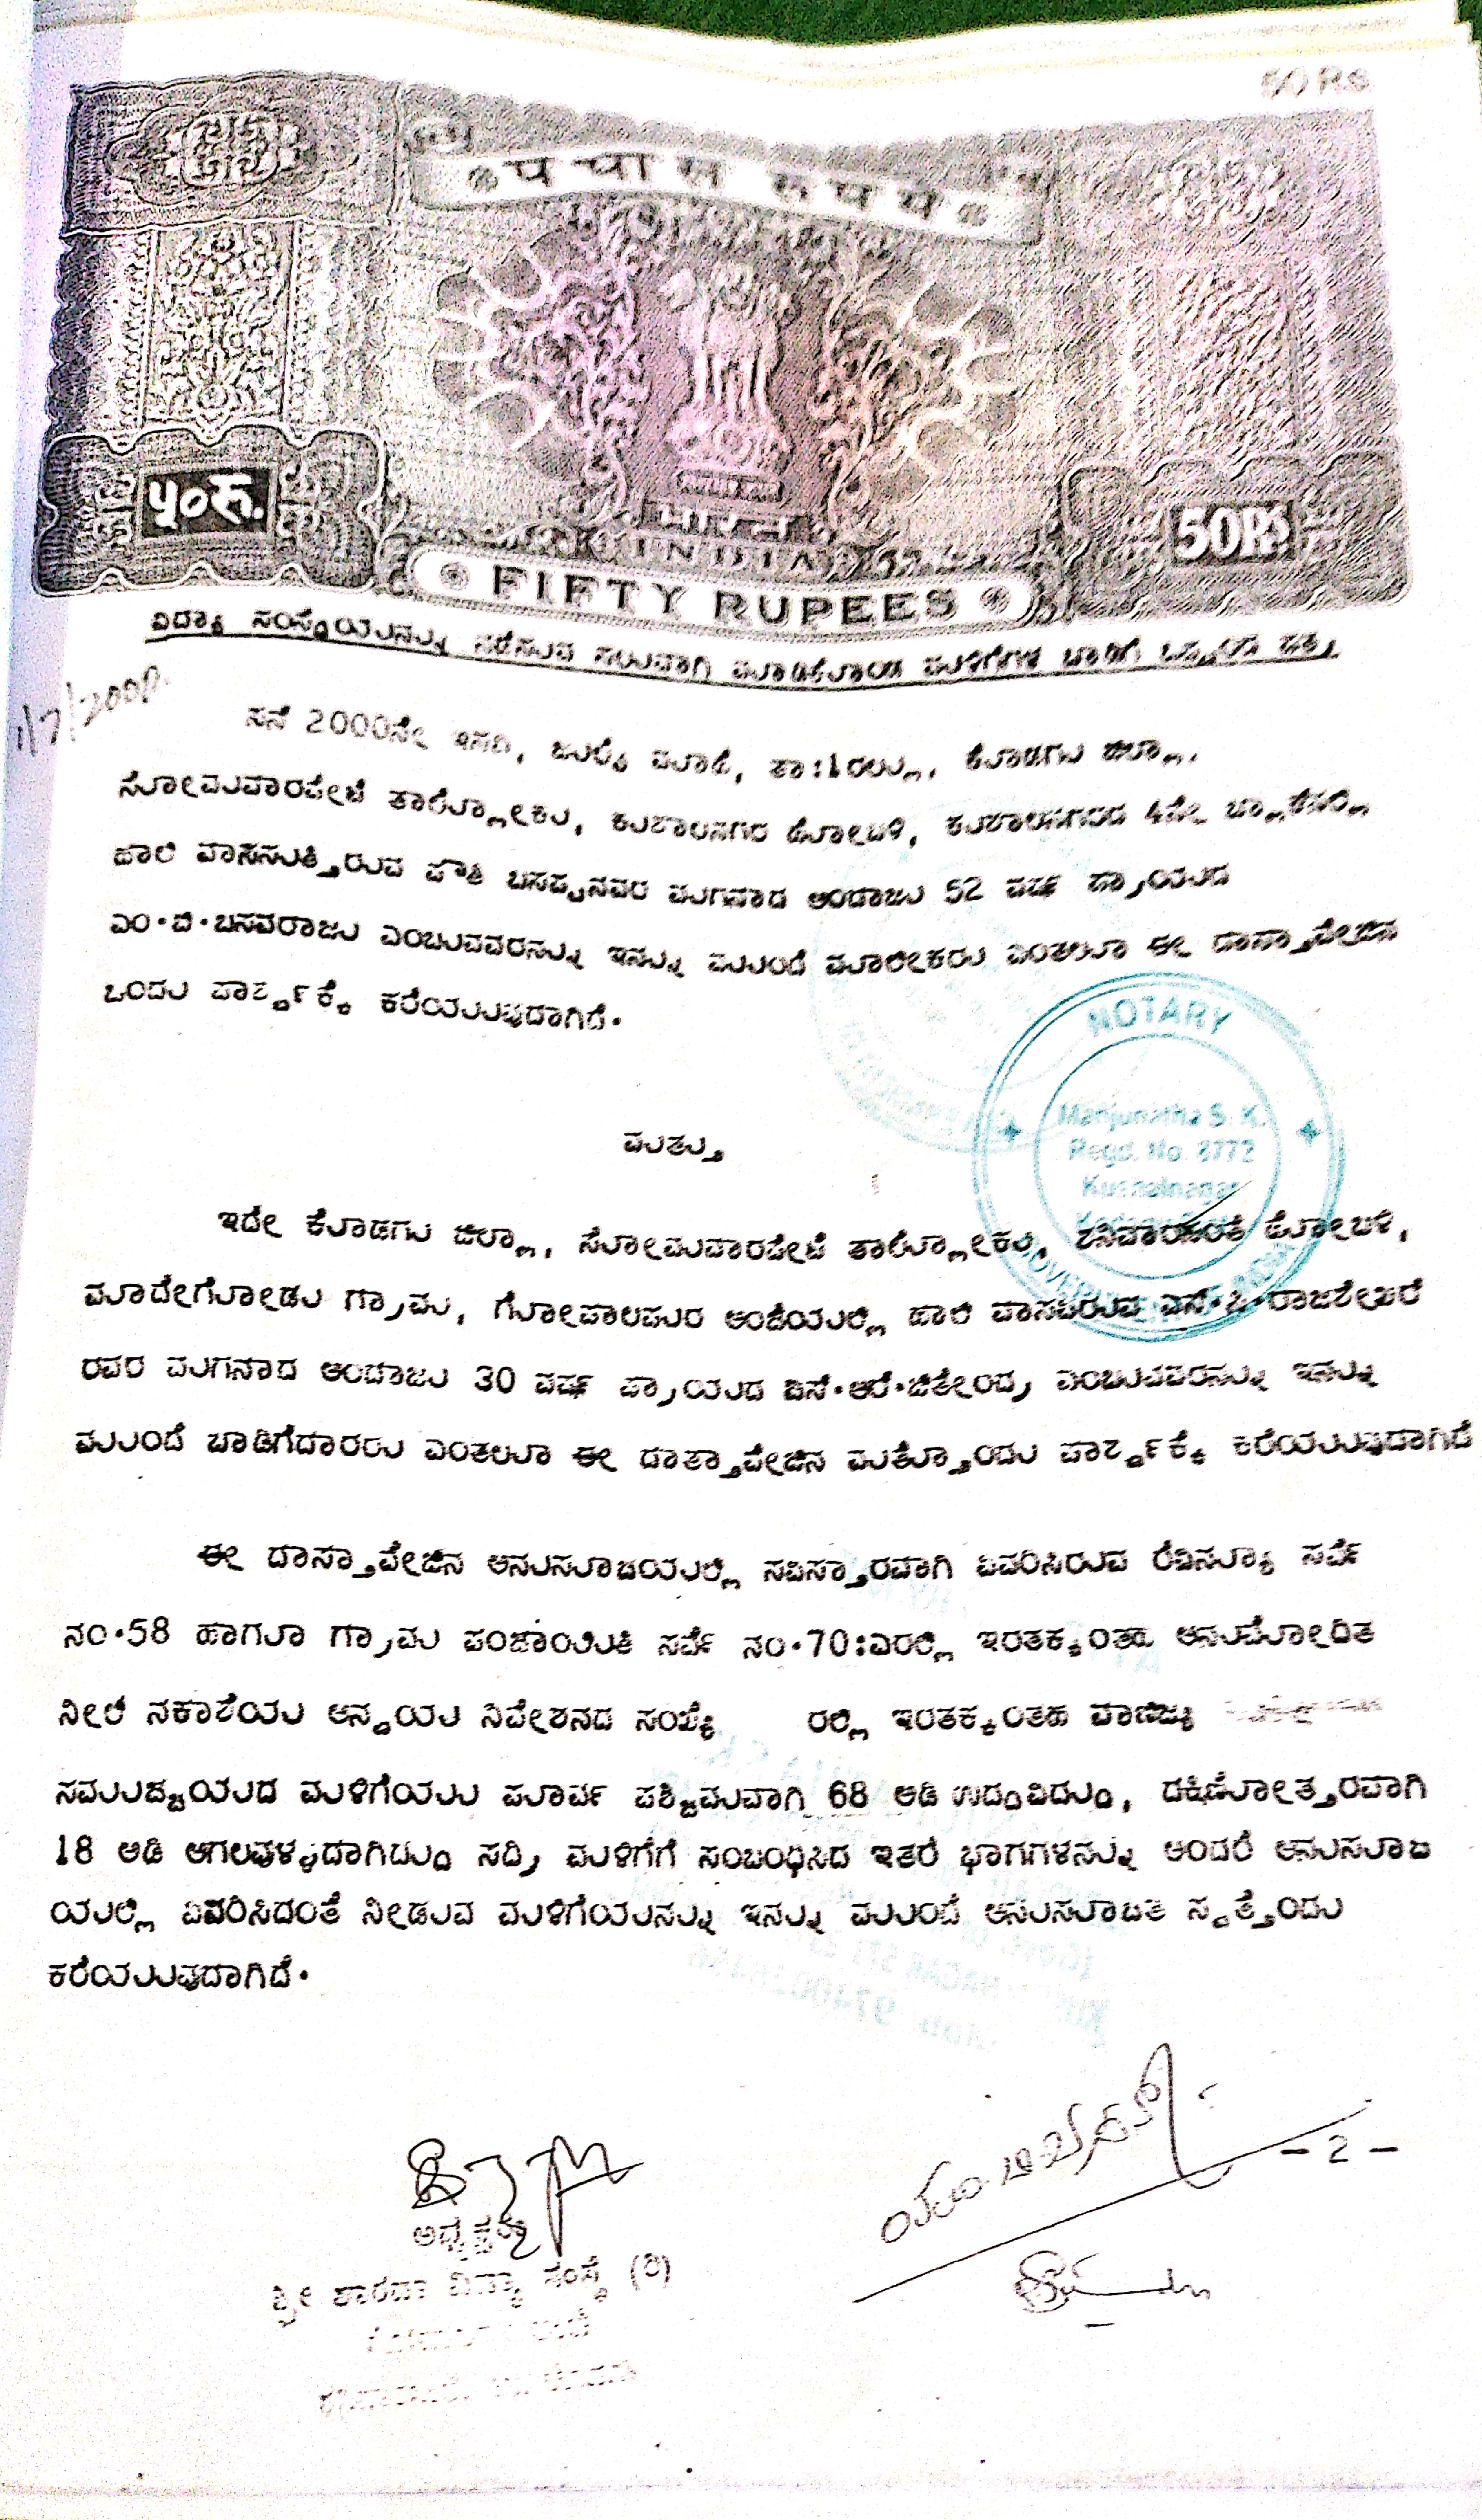 50 Rs.
पचास रुपये
भारत
INDIA
५०रु. 50Rs
FIFTY RUPEES
ವಿದ್ಯಾ ಸಂಸ್ಥೆಯನ್ನು ನಡೆಸುವ ಸಲುವಾಗಿ ಮಾಡಿಕೊಂಡ ಮಳಿಗೆಗಳ ಬಾಡಿಗೆ ಪತ್ರ
1/7/2000
ಸನೆ 2000ನೇ ಇಸವಿ, ಜುಲೈ ಮಾಹೆ, ತಾ:1ರಲ್ಲು, ಕೊಡಗು ಜಿಲ್ಲಾ,
ಸೋಮವಾರಪೇಟೆ ತಾಲ್ಲೂಕು, ಕುಶಾಲನಗರ ಹೋಬಳಿ, ಕುಶಾಲನಗರದ 4ನೇ ಬ್ಲಾಕಿನಲ್ಲಿ
ಹಾಲಿ ವಾಸಿಸುತ್ತಿರುವ ಪೌತಿ ಬಸಪ್ಪನವರ ಮಗನಾದ ಅಂದಾಜು 52 ವರ್ಷ ಪ್ರಾಯದ
ಎಂ.ಬಿ.ಬಸವರಾಜು ಎಂಬುವವರನ್ನು ಇನ್ನು ಮುಂದೆ ಮಾಲೀಕರು ಎಂತಲೂ ಈ ದಾಸ್ತಾವೇಜಿನ
ಒಂದು ಪಾರ್ಶ್ವಕ್ಕೆ ಕರೆಯುವುದಾಗಿದೆ.
ಮತ್ತು
NOTARY
Manjunatha S. K.
Regd. No. 8772
Kushalnagar
ಇದೇ ಕೊಡಗು ಜಿಲ್ಲಾ, ಸೋಮವಾರಪೇಟೆ ತಾಲ್ಲೂಕು, ಶನಿವಾರಸಂತೆ ಹೋಬಳಿ,
ಮಾದೇಗೋಡು ಗ್ರಾಮ, ಗೋಪಾಲಪುರ ಅಂಚೆಯಲ್ಲಿ ಹಾಲಿ ವಾಸವಿರುವ ಎಸ್.ಬಿ.ರಾಜಶೇಖರ
ರವರ ಮಗನಾದ ಅಂದಾಜು 30 ವರ್ಷ ಪ್ರಾಯದ ಎಸ್.ಆರ್.ಜಿತೇಂದ್ರ ಎಂಬುವವರನ್ನು ಇನ್ನು
ಮುಂದೆ ಬಾಡಿಗೆದಾರರು ಎಂತಲೂ ಈ ದಾಸ್ತಾವೇಜಿನ ಮತ್ತೊಂದು ಪಾರ್ಶ್ವಕ್ಕೆ ಕರೆಯುವುದಾಗಿದೆ
ಈ ದಾಸ್ತಾವೇಜಿನ ಅನುಸೂಚಿಯಲ್ಲಿ ಸವಿಸ್ತಾರವಾಗಿ ವಿವರಿಸಿರುವ ರೆವಿನ್ಯೂ ಸರ್ವೆ
ನಂ.58 ಹಾಗೂ ಗ್ರಾಮ ಪಂಚಾಯಿತಿ ಸರ್ವೆ ನಂ.70:ಎರಲ್ಲಿ ಇರತಕ್ಕಂತಹ ಅನುಮೋದಿತ
ನೀಲಿ ನಕಾಶೆಯ ಅನ್ವಯ ನಿವೇಶನದ ಸಂಖ್ಯೆ ರಲ್ಲಿ ಇರತಕ್ಕಂತಹ ವಾಣಿಜ್ಯ
ಸಮುಚ್ಚಯದ ಮಳಿಗೆಯು ಪೂರ್ವ ಪಶ್ಚಿಮವಾಗಿ 68 ಅಡಿ ಉದ್ದವಿದ್ದು, ದಕ್ಷಿಣೋತ್ತರವಾಗಿ
18 ಅಡಿ ಅಗಲವುಳ್ಳದಾಗಿದ್ದು ಸದ್ರಿ ಮಳಿಗೆಗೆ ಸಂಬಂಧಿಸಿದ ಇತರೆ ಭಾಗಗಳನ್ನು ಅಂದರೆ ಅನುಸೂಚಿ
ಯಲ್ಲಿ ವಿವರಿಸಿದಂತೆ ನೀಡುವ ಮಳಿಗೆಯನ್ನು ಇನ್ನು ಮುಂದೆ ಅನುಸೂಚಿತ ಸ್ವತ್ತೆಂದು
ಕರೆಯುವುದಾಗಿದೆ.
- 2 -
ಅಧ್ಯಕ್ಷರು
ಶ್ರೀ ಶಾರದಾ ವಿದ್ಯಾ ಸಂಸ್ಥೆ (ರಿ)